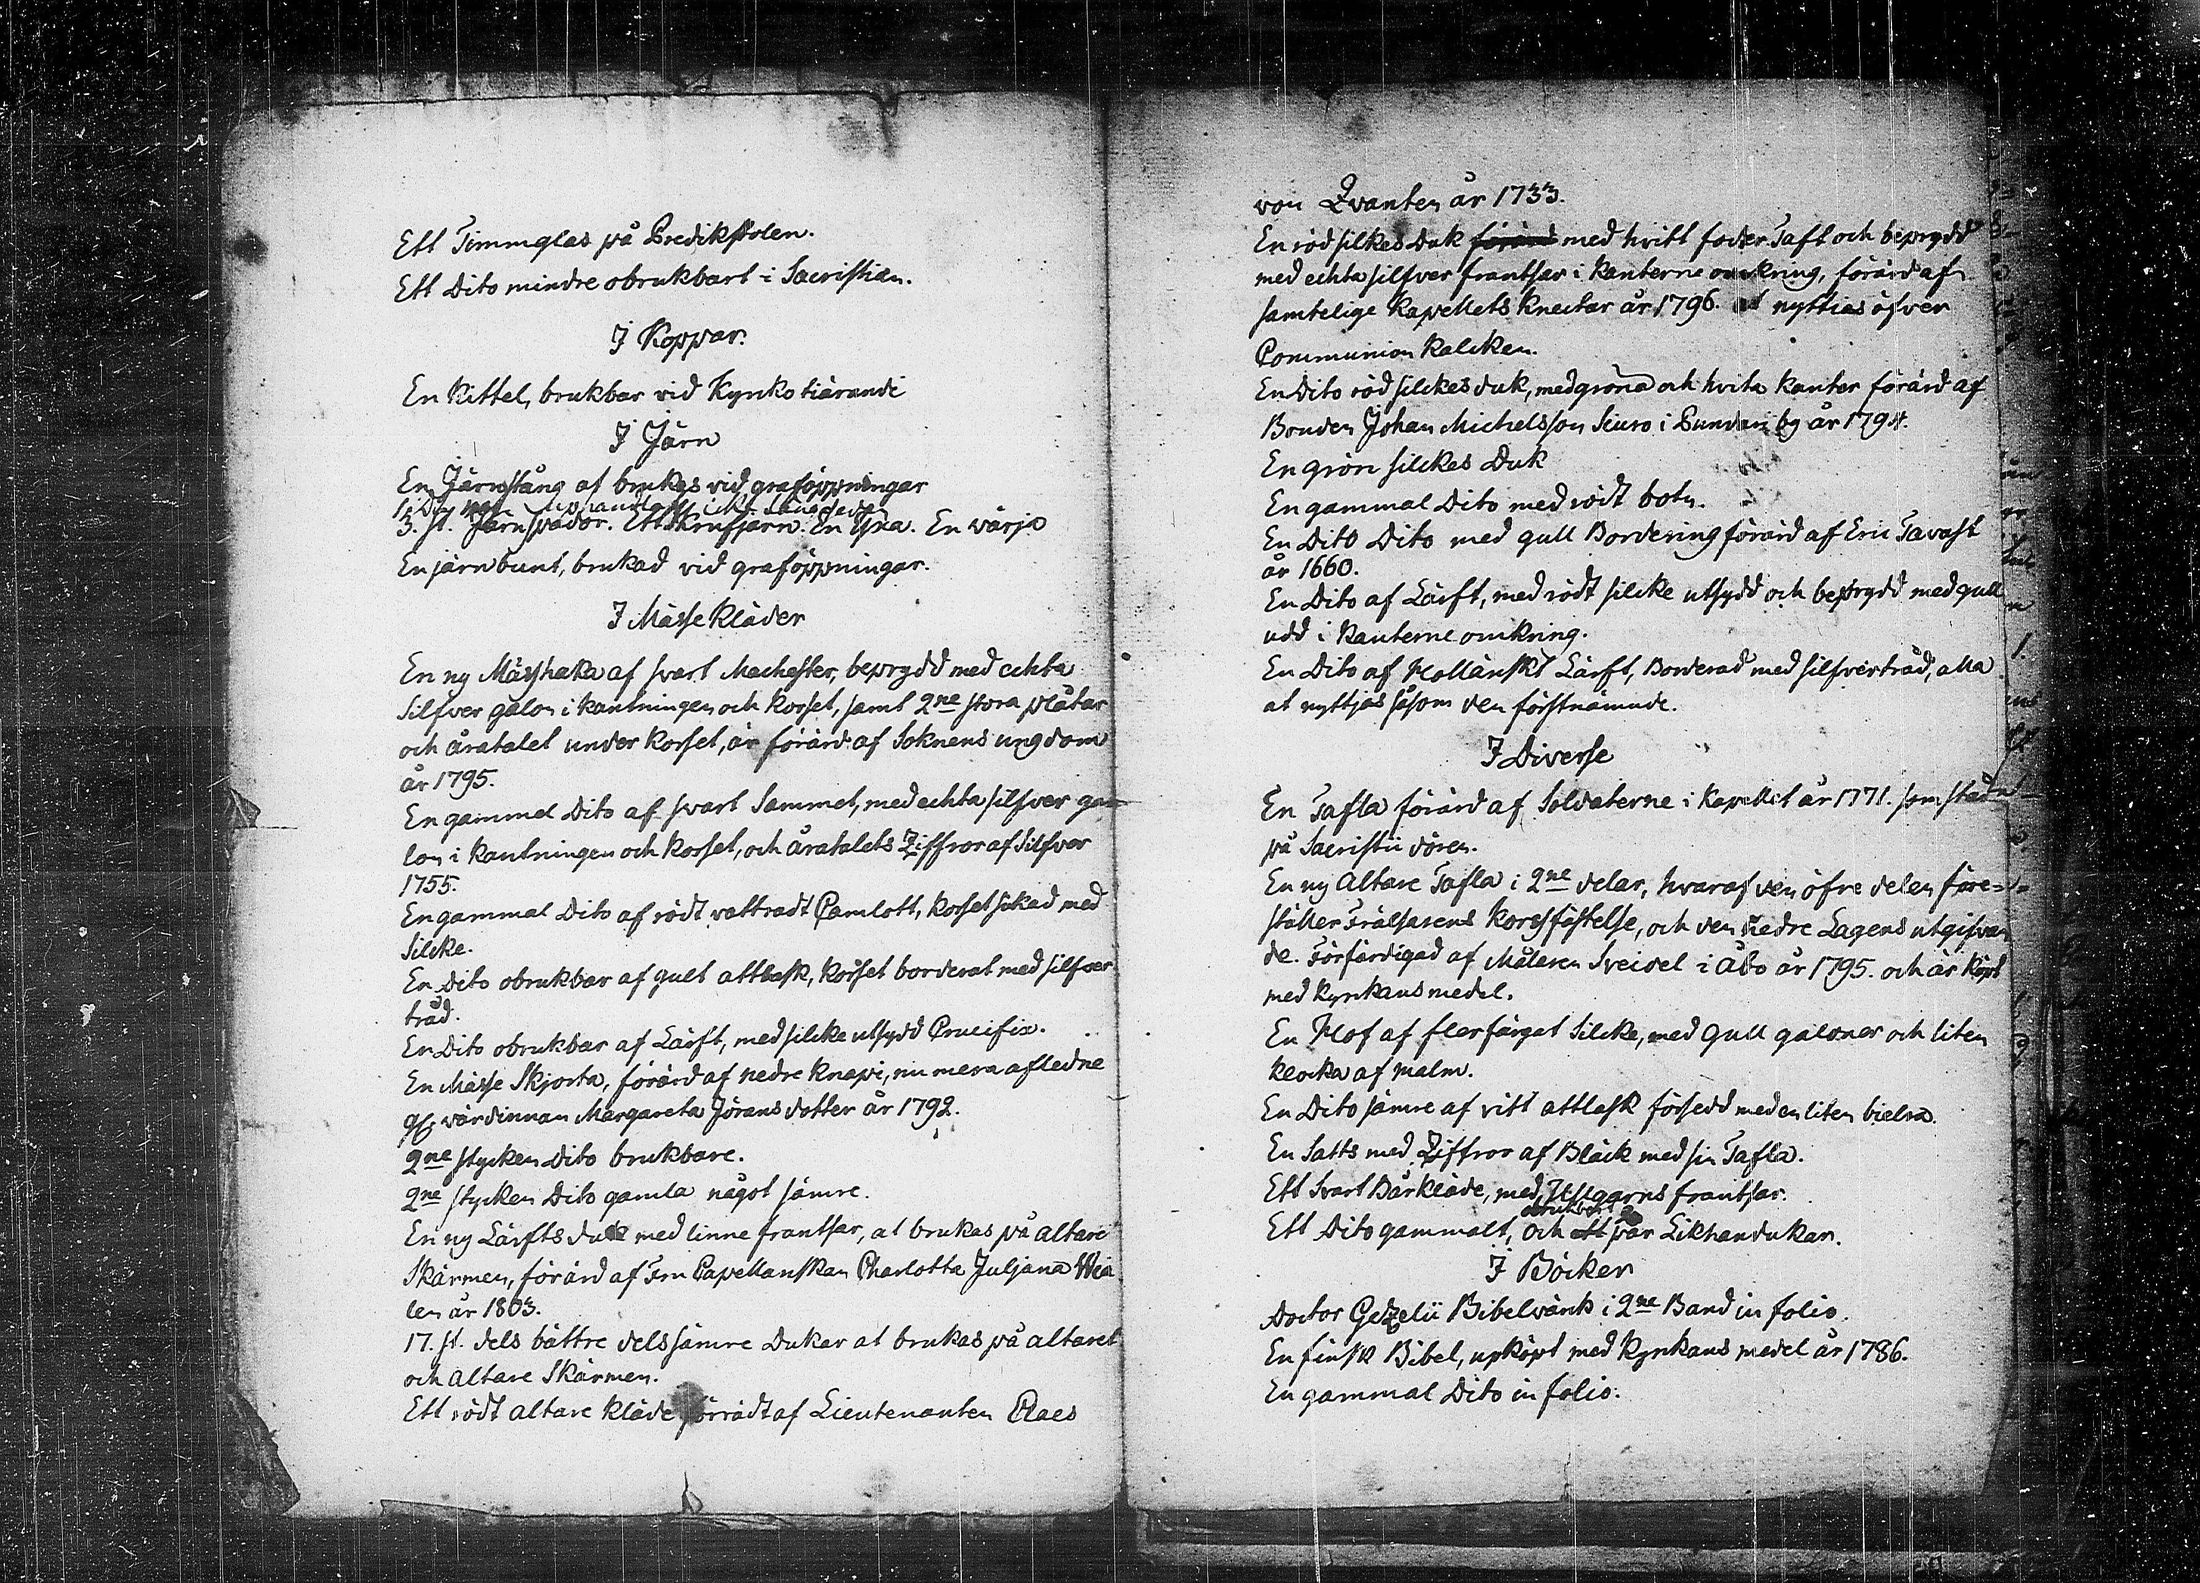 Ett Timmglas på Predikstolen.
Ett Dito mindre obrukbart i Sacristian.
I Koppar.
En Kittel, brukbar vid Kyrko tiärande
I Järn
En Järnstång at brukes vid graföppningar
3. st. Järnspador. Ett Skrufjärn. En Yxa. En värja
En järn bunt, brukad vid graföppningar.
I Mässe kläder
En ny Mässhaka af svart Machester, beprydd med echta
Silfver galon i kantningen och Korset, samt 2ne stora plåtar
och åratalet under Korset, är förärd af Soknens ungdom
år 1795.
En gammel Dito af svart Sammet, med echta silfver ga-
lon i kantningen och Korset, och åratalets Ziffror af Silfver
1755.
En gammal Dito af rödt vattradt Camlott, korset sökad med
Silcke.
En Dito obrukbar af gult attlask, korset borderat med silfver
tråd.
En Dito obrukbar af Lärft, med silcke utsydd Crucifix.
En Mässe Skjorta, förärd af nedre Knapi, nu mera afledne
gl. värdinnan Margareta Jörans dotter år 1792.
2ne stycken Dito brukbare.
2ne stycken Dito gamla något sämre.
En ny Lärfts duk med linne frantsar, at brukas på altare
Skärmen, förärd af Fru Capellanskan Charlotta Juljana
len år 1803.
17. st. dels bättre dels sämre Dukar at brukas på altaret
och altare Skärmen.
Ett rödt altare kläde förrädt af Lieutenanten Claes
von Qvanten år 1733.
En röd silkes Duk förärd med hvitt foder Taft och beprydd
med echta silfver frantsar i kanterne omkring, förärd af
samtelige kapellets Knectar år 1796. at nyttias öfver
Communion kalcken.
En Dito röd silckes duk, med gröna och hvita kanter förärd af
Bonden Johan Michelsson Siuro i by år 1794.
En grön silckes Duk
En gammal Dito med rödt botn.
En Dito Dito med gull Bordering förärd af Eric Tavast
år 1660.
En Dito af Lärft, med rödt silcke utsydd och beprydd med gull
udd i kanterne omkring.
En Dito af Hollänskt Lärft, Borderad med silfvertråd, alla
at nyttjas såsom den förstnämnde.
I Diverse
En Tafla förärd af Soldaterne i Kapellet år 1771. som står
på Sacristii dören.
En ny Altare Tafla i 2ne delar, hvaraf den öfre delen före-
ställer Frälsarens Korssfästelse, och den nedre Lagens utgifvan
de. Förfärdigad af Målaren Sveidel i Åbo år 1795. och är köpt
med Kyrkans medel.
En Hof af flerfärgat Silcke, med gull galoner och liten
klocka af malm.
En Dito sämre af vitt attlask försedd med en liten bielra.
En Satts med Ziffror af Bläck med sin Tafla.
Ett Svart Bårkläde, med Ullgarns frantsar.
obrukbart
Ett Dito gammalt, och ett par Likhandukar.
I Böcker
Doctor Gezelii Bibelvärk i 2ne Band in folio.
En finsk Bibel, upköpt med Kyrkans medel år 1786.
En gammal Dito in folio.